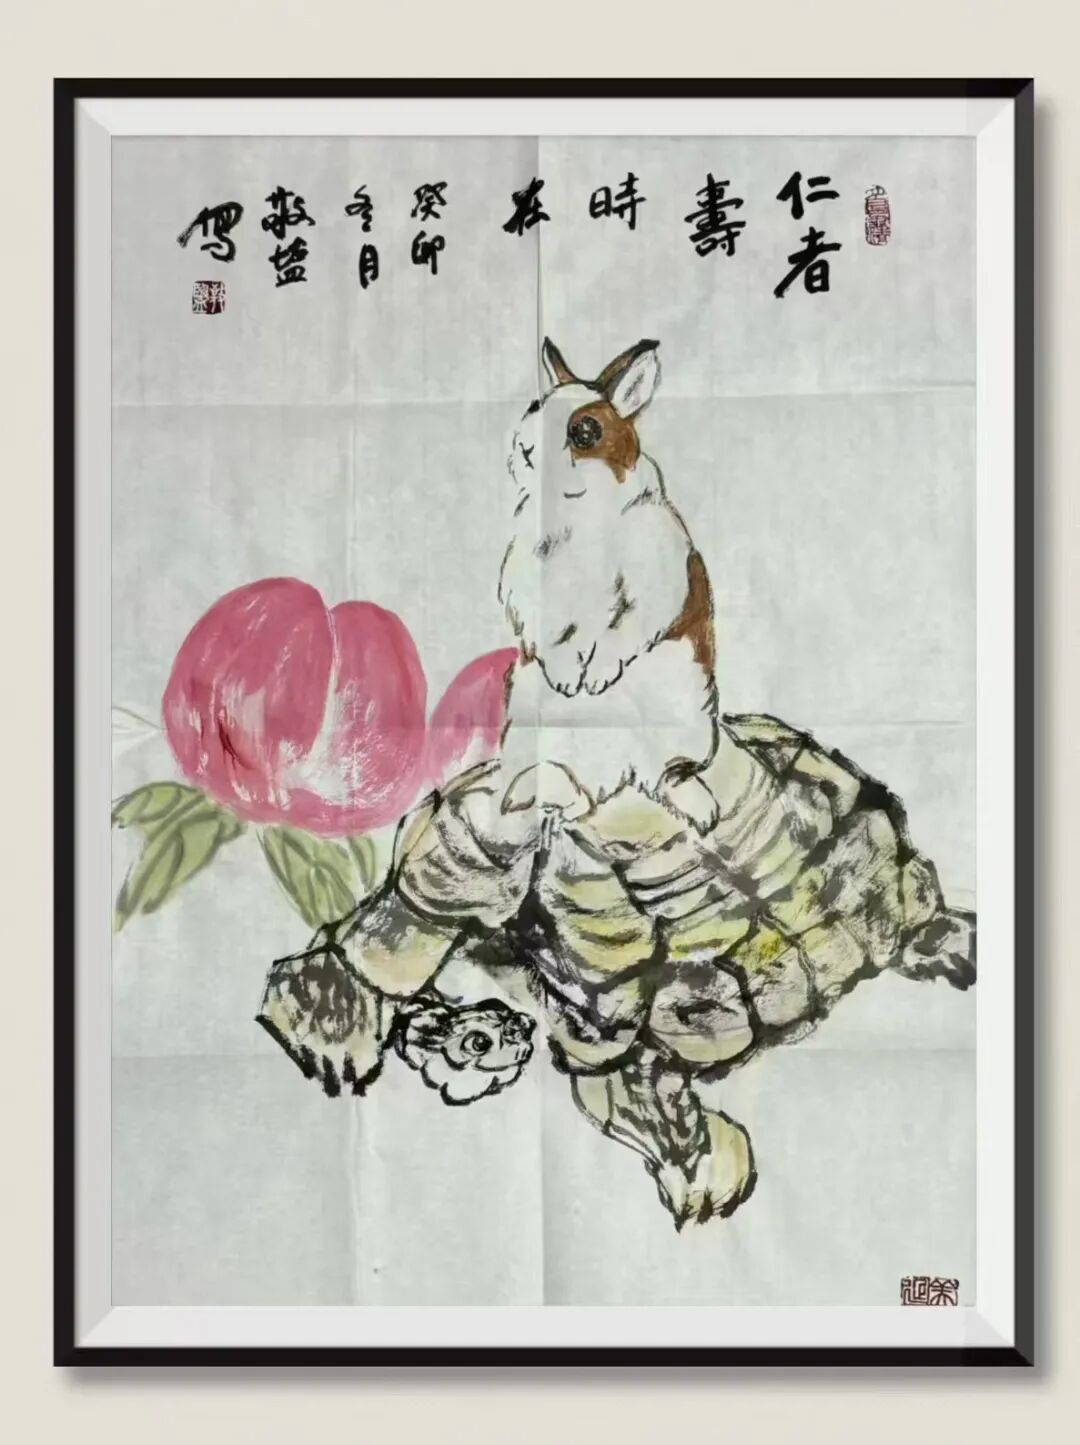 仁者
壽
時
在
癸卯
冬月
敬
寫